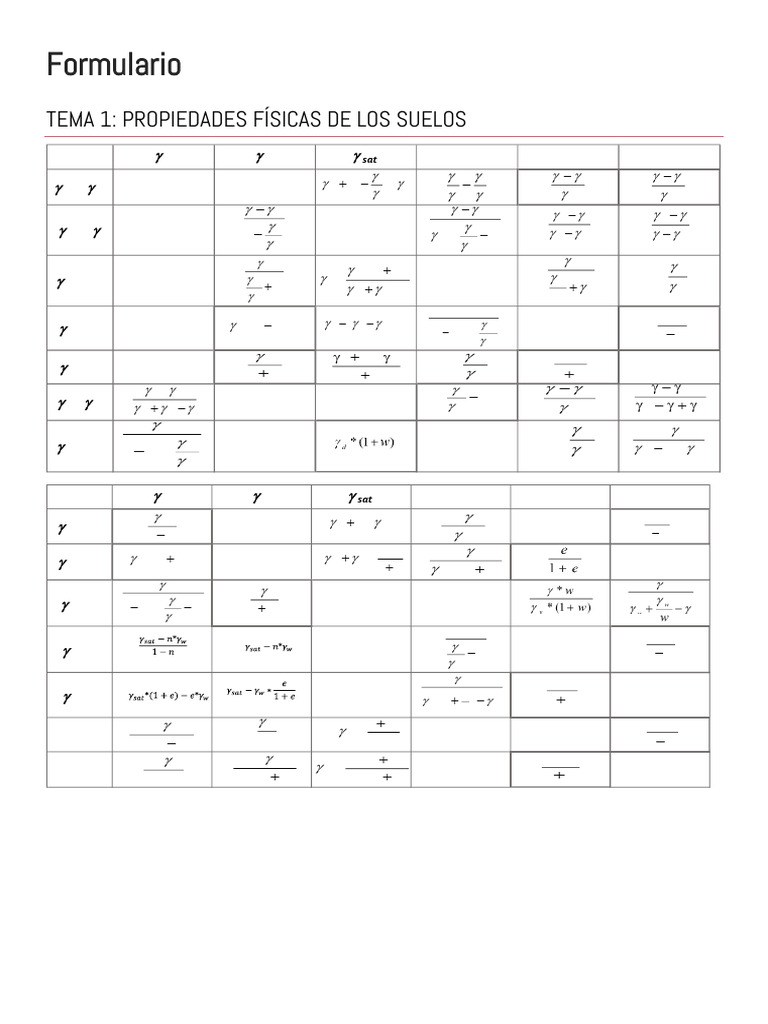 Formulario
TEMA 1: PROPIEDADES FÍSICAS DE LOS SUELOS
γ γ γ sat
γ γ γ + − γ/γ γ γ/γ − γ/γ γ − γ/γ γ − γ/γ
γ γ γ − γ/− γ/γ γ − γ/γ γ/γ − γ − γ/γ − γ γ − γ/γ − γ
γ γ/γ/γ + γ γ +/γ + γ γ/γ/ + γ γ/γ
γ γ − γ − γ − γ − γ/γ −
γ γ/+ γ + γ/+ γ/γ +
γ γ γ γ/γ + γ − γ γ/γ − γ − γ/γ γ − γ/γ − γ + γ
γ γ/− γ/γ γd * (1 + w) γ/γ γ/γ − γ
γ γ γ sat
γ γ/− γ + γ γ/γ −
γ γ + γ + γ + γ/γ + e/1 + e
γ γ/− γ/γ − γ/+ γ * w/γw * (1 + w) γ/γ.. + γw/w − γ
γ γsat − n*γw/1 − n γsat − n*γw γ/γ − −
γ γsat*(1 + e) − e*γw γsat − γw * e/1 + e γ/γ + − − γ +
γ/− γ γ + −
γ γ/+ γ +/+ +